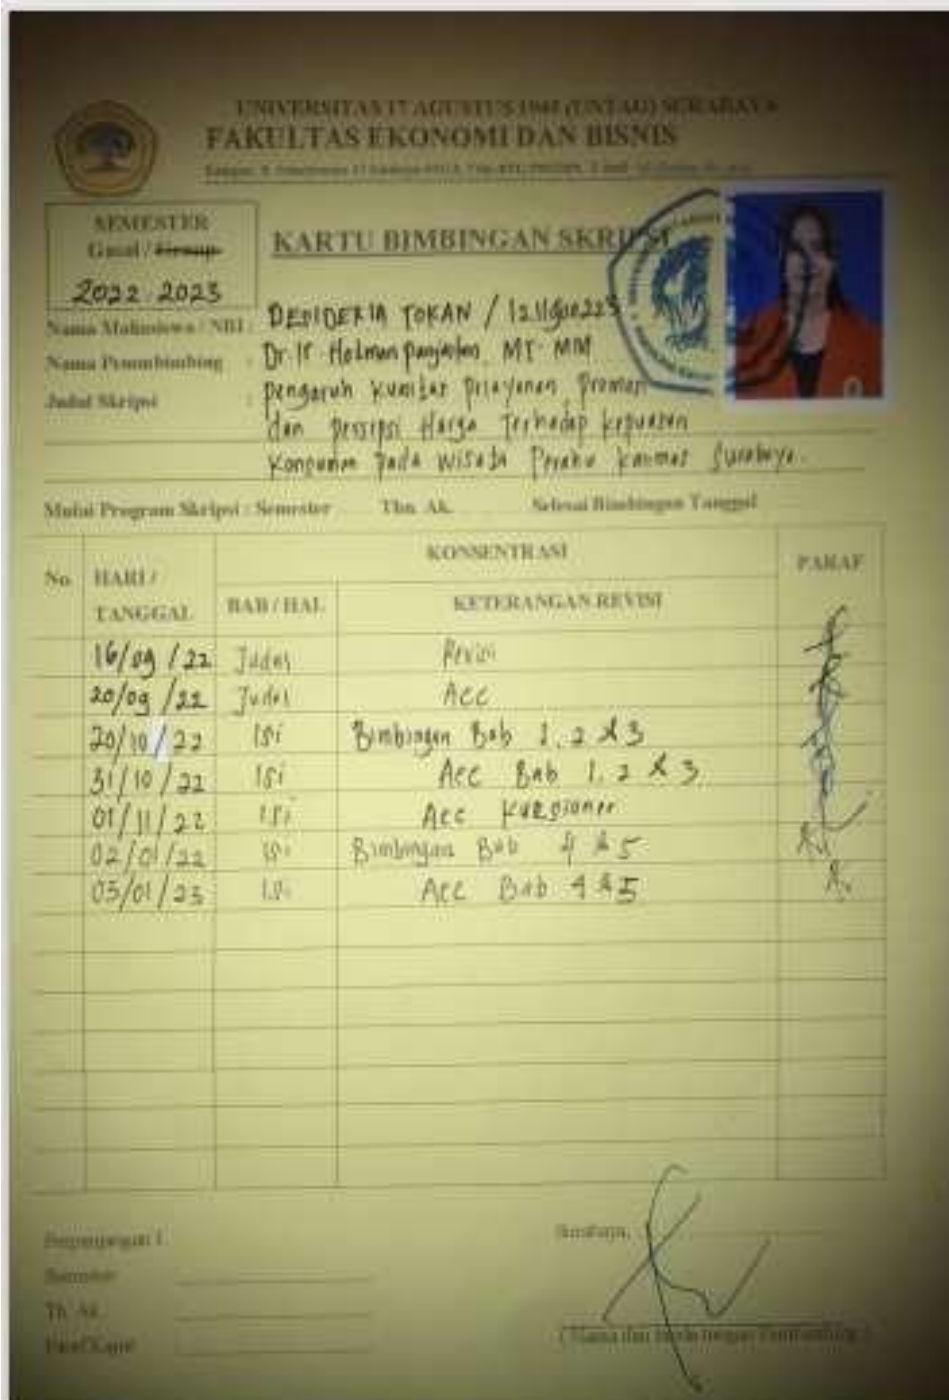 UNIVERSITAS 17 AGUSTUS 1945 (UNTAG) SURABAYA
FAKULTAS EKONOMI DAN BISNIS
SEMESTER
Gasal / Genap
2022 2023
KARTU BIMBINGAN SKRIPSI
Nama Mahasiswa / NBI : DESIDERIA TOKAN /
Nama Pembimbing : Dr. Ir. Holman Panjaitan MT. MM
Judul Skripsi : Pengaruh Kualitas Pelayanan, Promosi
dan Persepsi Harga Terhadap Kepuasan
Konsumen Pada Wisata Perahu Kalimas Surabaya.
Mulai Program Skripsi : Semester Thn. Ak. Selesai Bimbingan Tanggal
No. HARI / TANGGAL KONSENTRASI PARAF
BAB / HAL KETERANGAN REVISI
16/09/22 Judul Revisi
20/09/22 Judul Acc
20/10/22 Isi Bimbingan Bab 1, 2 & 3
31/10/22 Isi Acc Bab 1, 2 & 3
01/11/22 Isi Acc Kuesioner
02/01/22 Isi Bimbingan Bab 4 & 5
03/01/23 Isi Acc Bab 4 & 5
Perpanjangan I
Semester
Th. Ak.
Surabaya,
( Nama dan Tanda tangan Pembimbing )